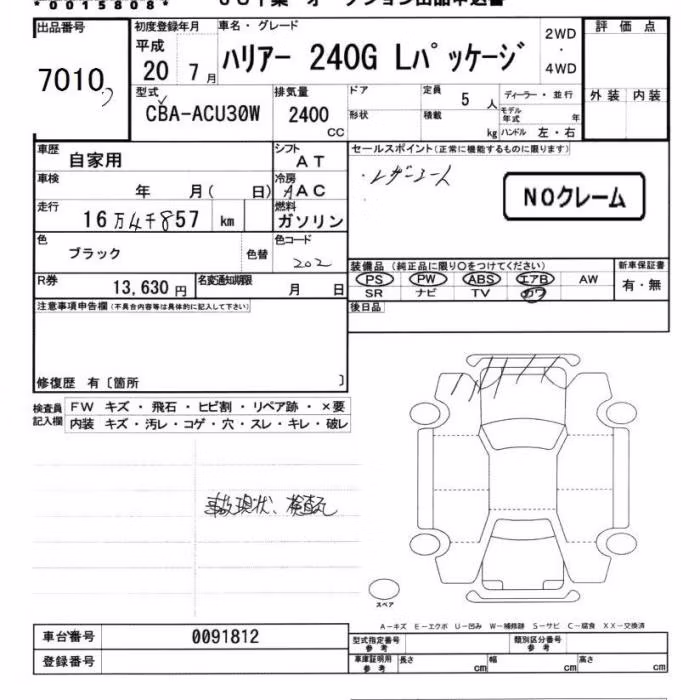 *0015808*
出品番号 初度登録年月 車名・グレード 2WD 評価点
7010 平成 20 7月 ハリアー 240G Lパッケージ ・ 4WD
型式 排気量 ドア 定員 5人 ディーラー・並行 外装 内装
CBA-ACU30W 2400 CC 形状 積載 kg モデル年式 年 ハンドル 左・右
車歴 自家用 シフト AT セールスポイント(正常に機能するものに限ります)
車検 年 月( 日) 冷房 AAC
NOクレーム
走行 16万4千857 km 燃料 ガソリン
色 ブラック 色替 色コード 202
装備品 (純正品に限り○をつけてください) 新車保証書
R券 13,630円 名変通知期限 月 日 PS PW ABS エアB AW 有・無
SR ナビ TV カワ
注意事項申告欄(不具合内容等は具体的に記入して下さい) 後日品
修復歴 有〔箇所 〕
検査員 記入欄 FW キズ・飛石・ヒビ割・リペア跡・×要
内装 キズ・汚レ・コゲ・穴・スレ・キレ・破レ
事故現状、検査なし
スペア
A-キズ E-エクボ U-凹み W-補修跡 S-サビ C-腐食 XX-交換済
車台番号 0091812 型式指定番号 参考 類別区分番号 参考
登録番号 車庫証明用 参考 長さ cm 幅 cm 高さ cm